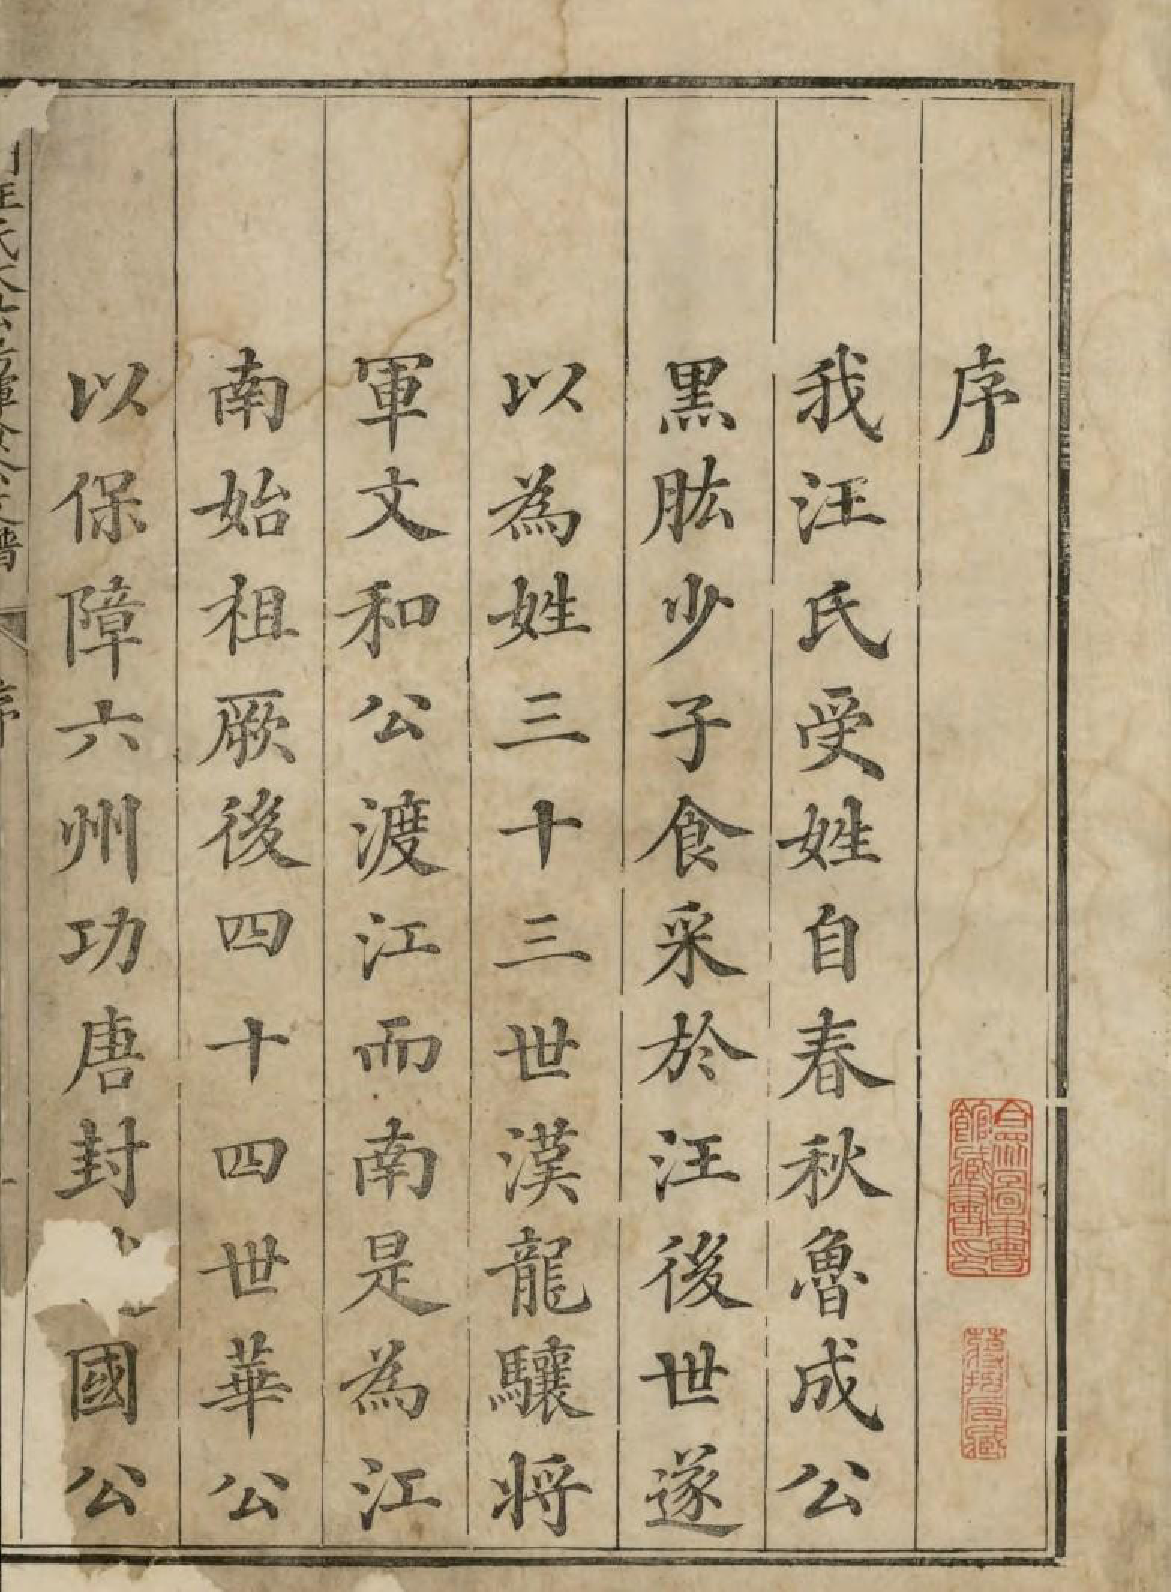 序
我汪氏受姓自春秋魯成公
黒肱少子食采於汪後世遂
以為姓三十三世漢龍驤将
軍文和公渡江而南是為江
南始祖厥後四十四世華公
以保障六州功唐封國公
汪氏
譜
序